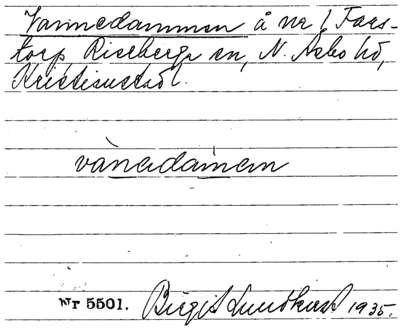 Vannedammen å nr 1 Faes-
torp, Riseberga sn, N. Åsbo hd,
Kristianstad l.
vànedàmen
Nr 5501. Birgit Lundkvist 1935.